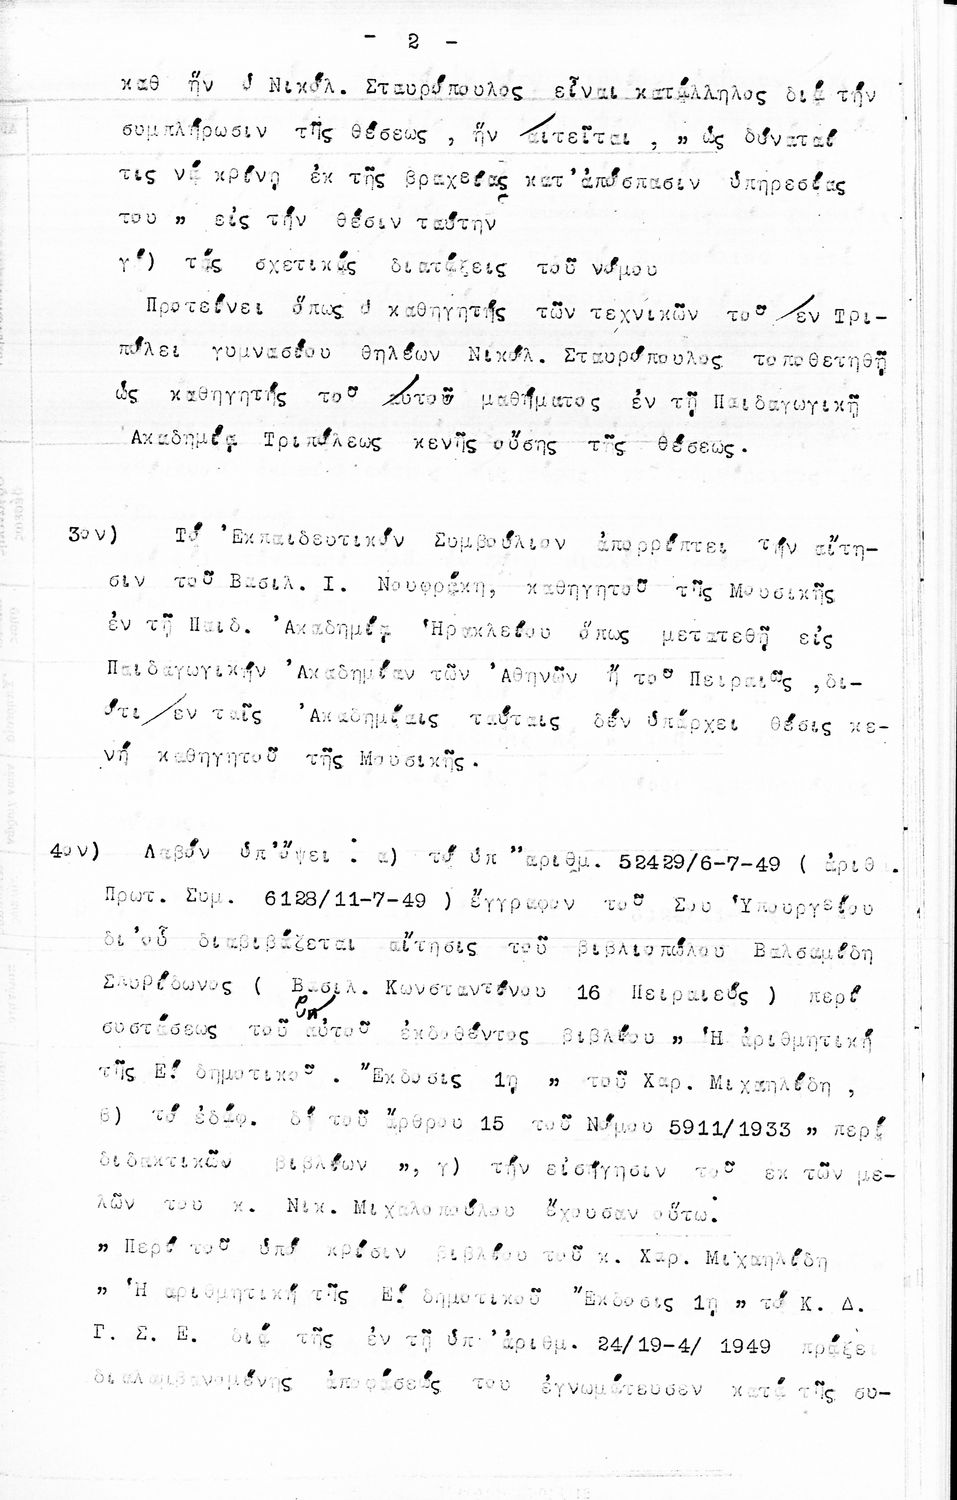 - 2 -
καθ ἥν ὁ Νικόλ. Σταυρόπουλος εἶναι κατάλληλος διά τήν
συμπλήρωσιν τῆς θέσεως , ἥν αἰτεῖται , " ὡς δύναταί
τις νά κρίνῃ ἐκ τῆς βραχείας κατ'ἀπόσπασιν ὑπηρεσίας
του " εἰς τήν θέσιν ταύτην
γ') τάς σχετικάς διατάξεις τοῦ νόμου
Προτείνει ὅπως ὁ καθηγητής τῶν τεχνικῶν τοῦ ἐν Τρι-
πόλει γυμνασίου θηλέων Νικόλ. Σταυρόπουλος τοποθετηθῇ
ὡς καθηγητής τοῦ αὐτοῦ μαθήματος ἐν τῇ Παιδαγωγικῇ
Ἀκαδημίᾳ Τριπόλεως κενῆς οὔσης τῆς θέσεως.
3ον) Τό Ἐκπαιδευτικόν Συμβούλιον ἀπορρίπτει τήν αἴτη-
σιν τοῦ Βασιλ. Ι. Νουφράκη, καθηγητοῦ τῆς Μουσικῆς
ἐν τῇ Παιδ. Ἀκαδημίᾳ Ἡρακλείου ὅπως μετατεθῇ εἰς
Παιδαγωγικήν Ἀκαδημίαν τῶν Ἀθηνῶν ἤ τοῦ Πειραιῶς ,δι-
ότι ἐν ταῖς Ἀκαδημίαις ταύταις δέν ὑπάρχει θέσις κε-
νή καθηγητοῦ τῆς Μουσικῆς.
4ον) Λαβόν ὑπ'ὄψει : α) τό ὑπ "αριθμ. 52429/6-7-49 ( ἀριθ .
Πρωτ. Συμ. 6128/11-7-49 ) ἔγγραφον τοῦ Σου Ὑπουργείου
δι'οὗ διαβιβάζεται αἴτησις τοῦ βιβλιοπώλου Βαλσαμίδη
Σπυρίδωνος ( Βασιλ. Κωνσταντίνου 16 Πειραιεύς ) περί
συστάσεως τοῦ ὑπ αὐτοῦ ἐκδοθέντος βιβλίου " Ἡ ἀριθμητική
τῆς Ε! δημοτικοῦ . Ἔκδοσις 1η " τοῦ Χαρ. Μιχαηλίδη ,
β) τό ἐδάφ. δ' τοῦ ἄρθρου 15 τοῦ Νόμου 5911/1933 " περί
διδακτικῶν βιβλίων ", γ) τήν εἰσήγησιν τοῦ ἐκ τῶν με-
λῶν του κ. Νικ. Μιχαλοπούλου ἔχουσαν οὕτω:
" Περί τοῦ ὑπό κρίσιν βιβλίου τοῦ κ. Χαρ. Μιχαηλίδη
" Ἡ αριθμητική τῆς Ε! δημοτικοῦ Ἔκδοσις 1η " τό Κ. Δ.
Γ. Σ. Ε. διά τῆς ἐν τῇ ὑπ'ἀριθμ. 24/19-4/ 1949 πράξει
διαλαμβανομένης ἀποφάσεώς του ἐγνωμάτευσεν κατά τῆς συ-